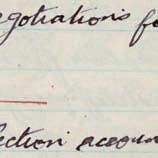 gotiations fo
ection accoun